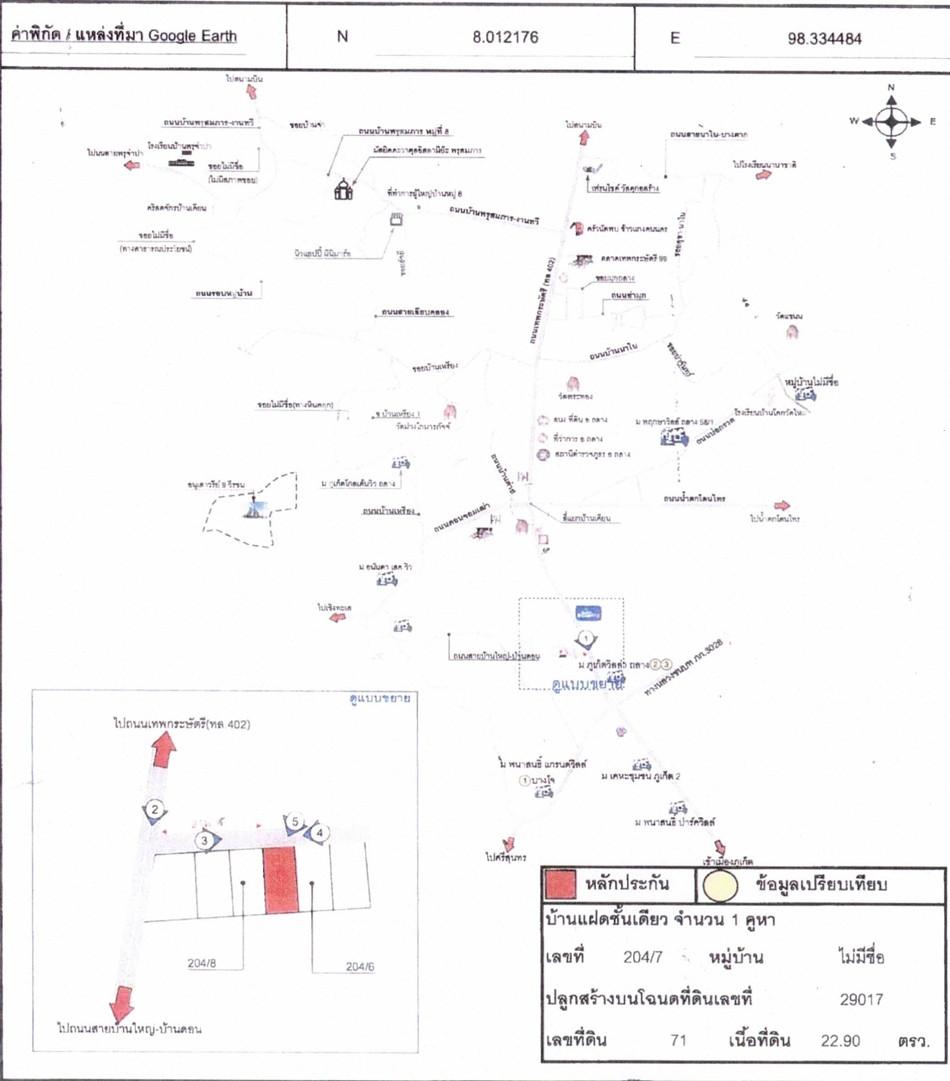 ค่าพิกัด / แหล่งที่มา Google Earth N 8.012176 E 98.334484
ไปสนามบิน
ถนนบ้านพรุสมภาร-งานทวี
ซอยบ้านจ่า
ถนนบ้านพรุสมภาร หมู่ที่ 8
ไปสนามบิน
ถนนสายนาใน-บางตาก
N
W E
S
ไปถนนสายพรุจำปา
โรงเรียนบ้านพรุจำปา
ซอยไม่มีชื่อ
(ไม่มีสภาพซอย)
ไปโรงเรียนนานาชาติ
ที่ทำการผู้ใหญ่บ้านหมู่ 8
คริสตจักรบ้านเคียน
ถนนบ้านพรุสมภาร-งานทวี
ซอยไม่มีชื่อ
(ทางสาธารณประโยชน์)
ตลาดเทพกระษัตรี 99
ถนนเทพกระษัตรี (ทล 402)
ถนนรอบหมู่บ้าน
ถนนสายเลียบคลอง
ซอยบ้านเหรียง
ถนนบ้านนาใน
หมู่บ้านไม่มีชื่อ
วัดพระทอง
ซอยไม่มีชื่อ(ทางหินคลุก)
ซ.บ้านเหรียง 1
วัดม่วงโกมารภัจจ์
ที่ว่าการ อ ถลาง
สถานีตำรวจภูธร อ ถลาง
ม พฤกษาวิลล์ ถลาง 58/1
ถนนบ่อกรวด
อนุสาวรีย์ 9 วีรชน
ม ภูเก็ตโกลเด้นวิว ถลาง
ถนนบ้านเหรียง
ถนนดอนจอมเฒ่า
สี่แยกบ้านเคียน
ถนนน้ำตกโตนไทร
ไปน้ำตกโตนไทร
ม อนันดา เลค วิว
ไปเชิงทะเล
ถนนสายบ้านใหญ่-บ้านดอน
1
ม ภูเก็ตวิลล่า ถลาง 2 3
ดูแบบขยาย
ทางหลวงชนบท ภก.3028
ม พนาสนธิ์ แกรนด์วิลล์
1 บางโจ
ม เคหะชุมชน ภูเก็ต 2
ม พนาสนธิ์ ปาร์ควิลล์
ไปศรีสุนทร
เข้าเมืองภูเก็ต
ดูแบบขยาย
ไปถนนเทพกระษัตรี(ทล 402)
2
3
5
4
204/8
204/6
ไปถนนสายบ้านใหญ่-บ้านดอน
หลักประกัน ข้อมูลเปรียบเทียบ
บ้านแฝดชั้นเดียว จำนวน 1 คูหา
เลขที่ 204/7 หมู่บ้าน ไม่มีชื่อ
ปลูกสร้างบนโฉนดที่ดินเลขที่ 29017
เลขที่ดิน 71 เนื้อที่ดิน 22.90 ตรว.